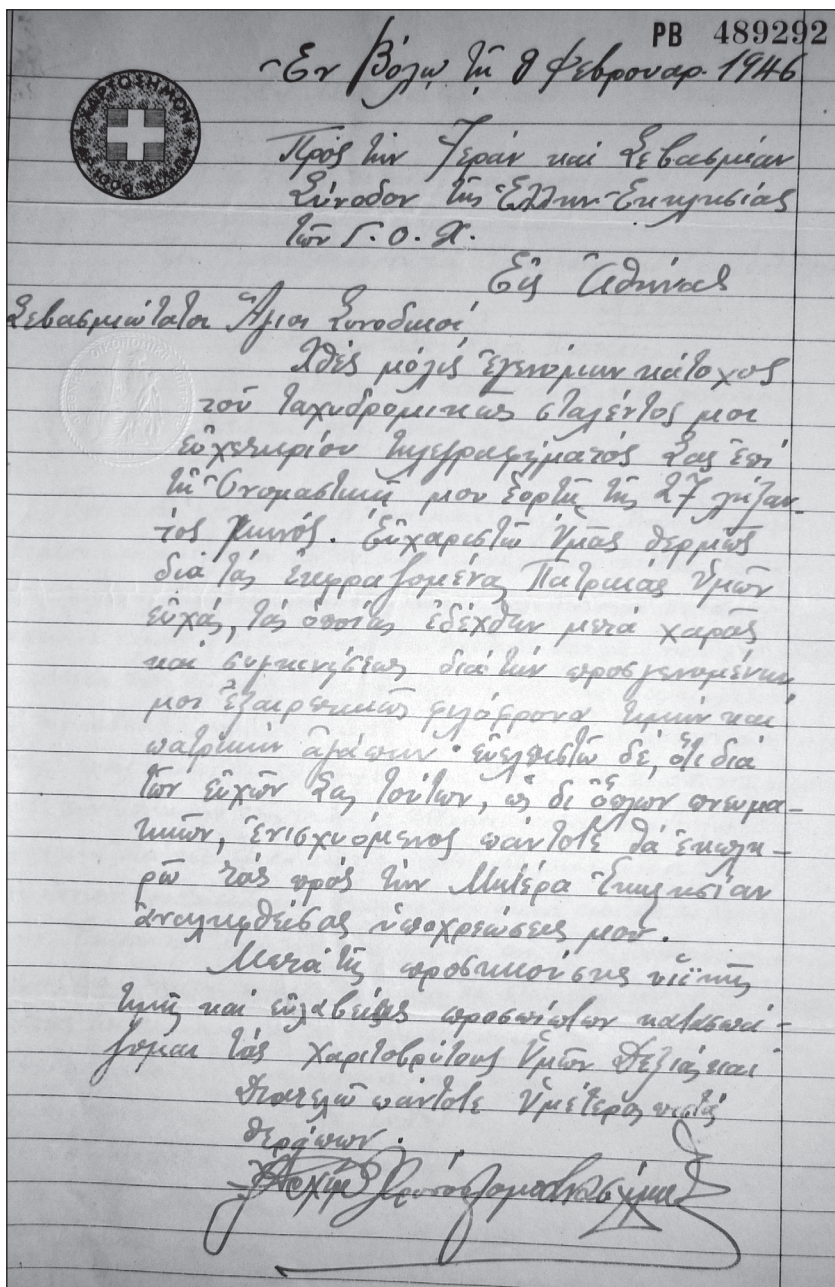 ΡΒ 489292
Ἐν Βόλῳ τῇ 8 Φεβρουαρ. 1946
ΧΑΡΤΟΣΗΜΟΝ
Πρός τήν Ἱεράν καί Σεβασμίαν
Σύνοδον τῆς Ἑλλην. Ἐκκλησίας
τῶν Γ. Ο. Χ.
Εἰς Ἀθήνας
Σεβασμιώτατοι Ἅγιοι Συνοδικοί
Χθές μόλις ἐγενόμην κάτοχος
τοῦ ταχυδρομικῶς σταλέντος μοι
εὐχετηρίου τηλεγραφήματός Σας ἐπί
τῇ Ὀνομαστικῇ μου ἑορτῇ τῆς 27 λήξαν-
τος μηνός. Εὐχαριστῶ Ὑμᾶς θερμῶς
διά τάς ἐκφραζομένας Πατρικάς Ὑμῶν
εὐχάς, τάς ὁποίας ἐδέχθην μετά χαρᾶς
καί συγκινήσεως διά τήν προσγενομένην
μοι ἐξαιρετικῶς φιλόφρονα τιμήν καί
πατρικήν ἀγάπην· εὐελπιστῶ δέ, ὅτι διά
τῶν εὐχῶν Σας τούτων, ὡς δι' ὅπλων πνευμα-
τικῶν, ἐνισχυόμενος πάντοτε θά ἐκπλη-
ρῶ τάς πρός τήν Μητέρα Ἐκκλησίαν
ἀναληφθείσας ὑποχρεώσεις μου.
Μετά τῆς προσηκούσης υἱϊκῆς
τιμῆς καί εὐλαβείας προσπίπτων κατασπά-
ζομαι τάς χαριτοβρύτους Ὑμῶν Δεξιάς καί
Διατελῶ πάντοτε Ὑμέτερος πιστός
θεράπων.